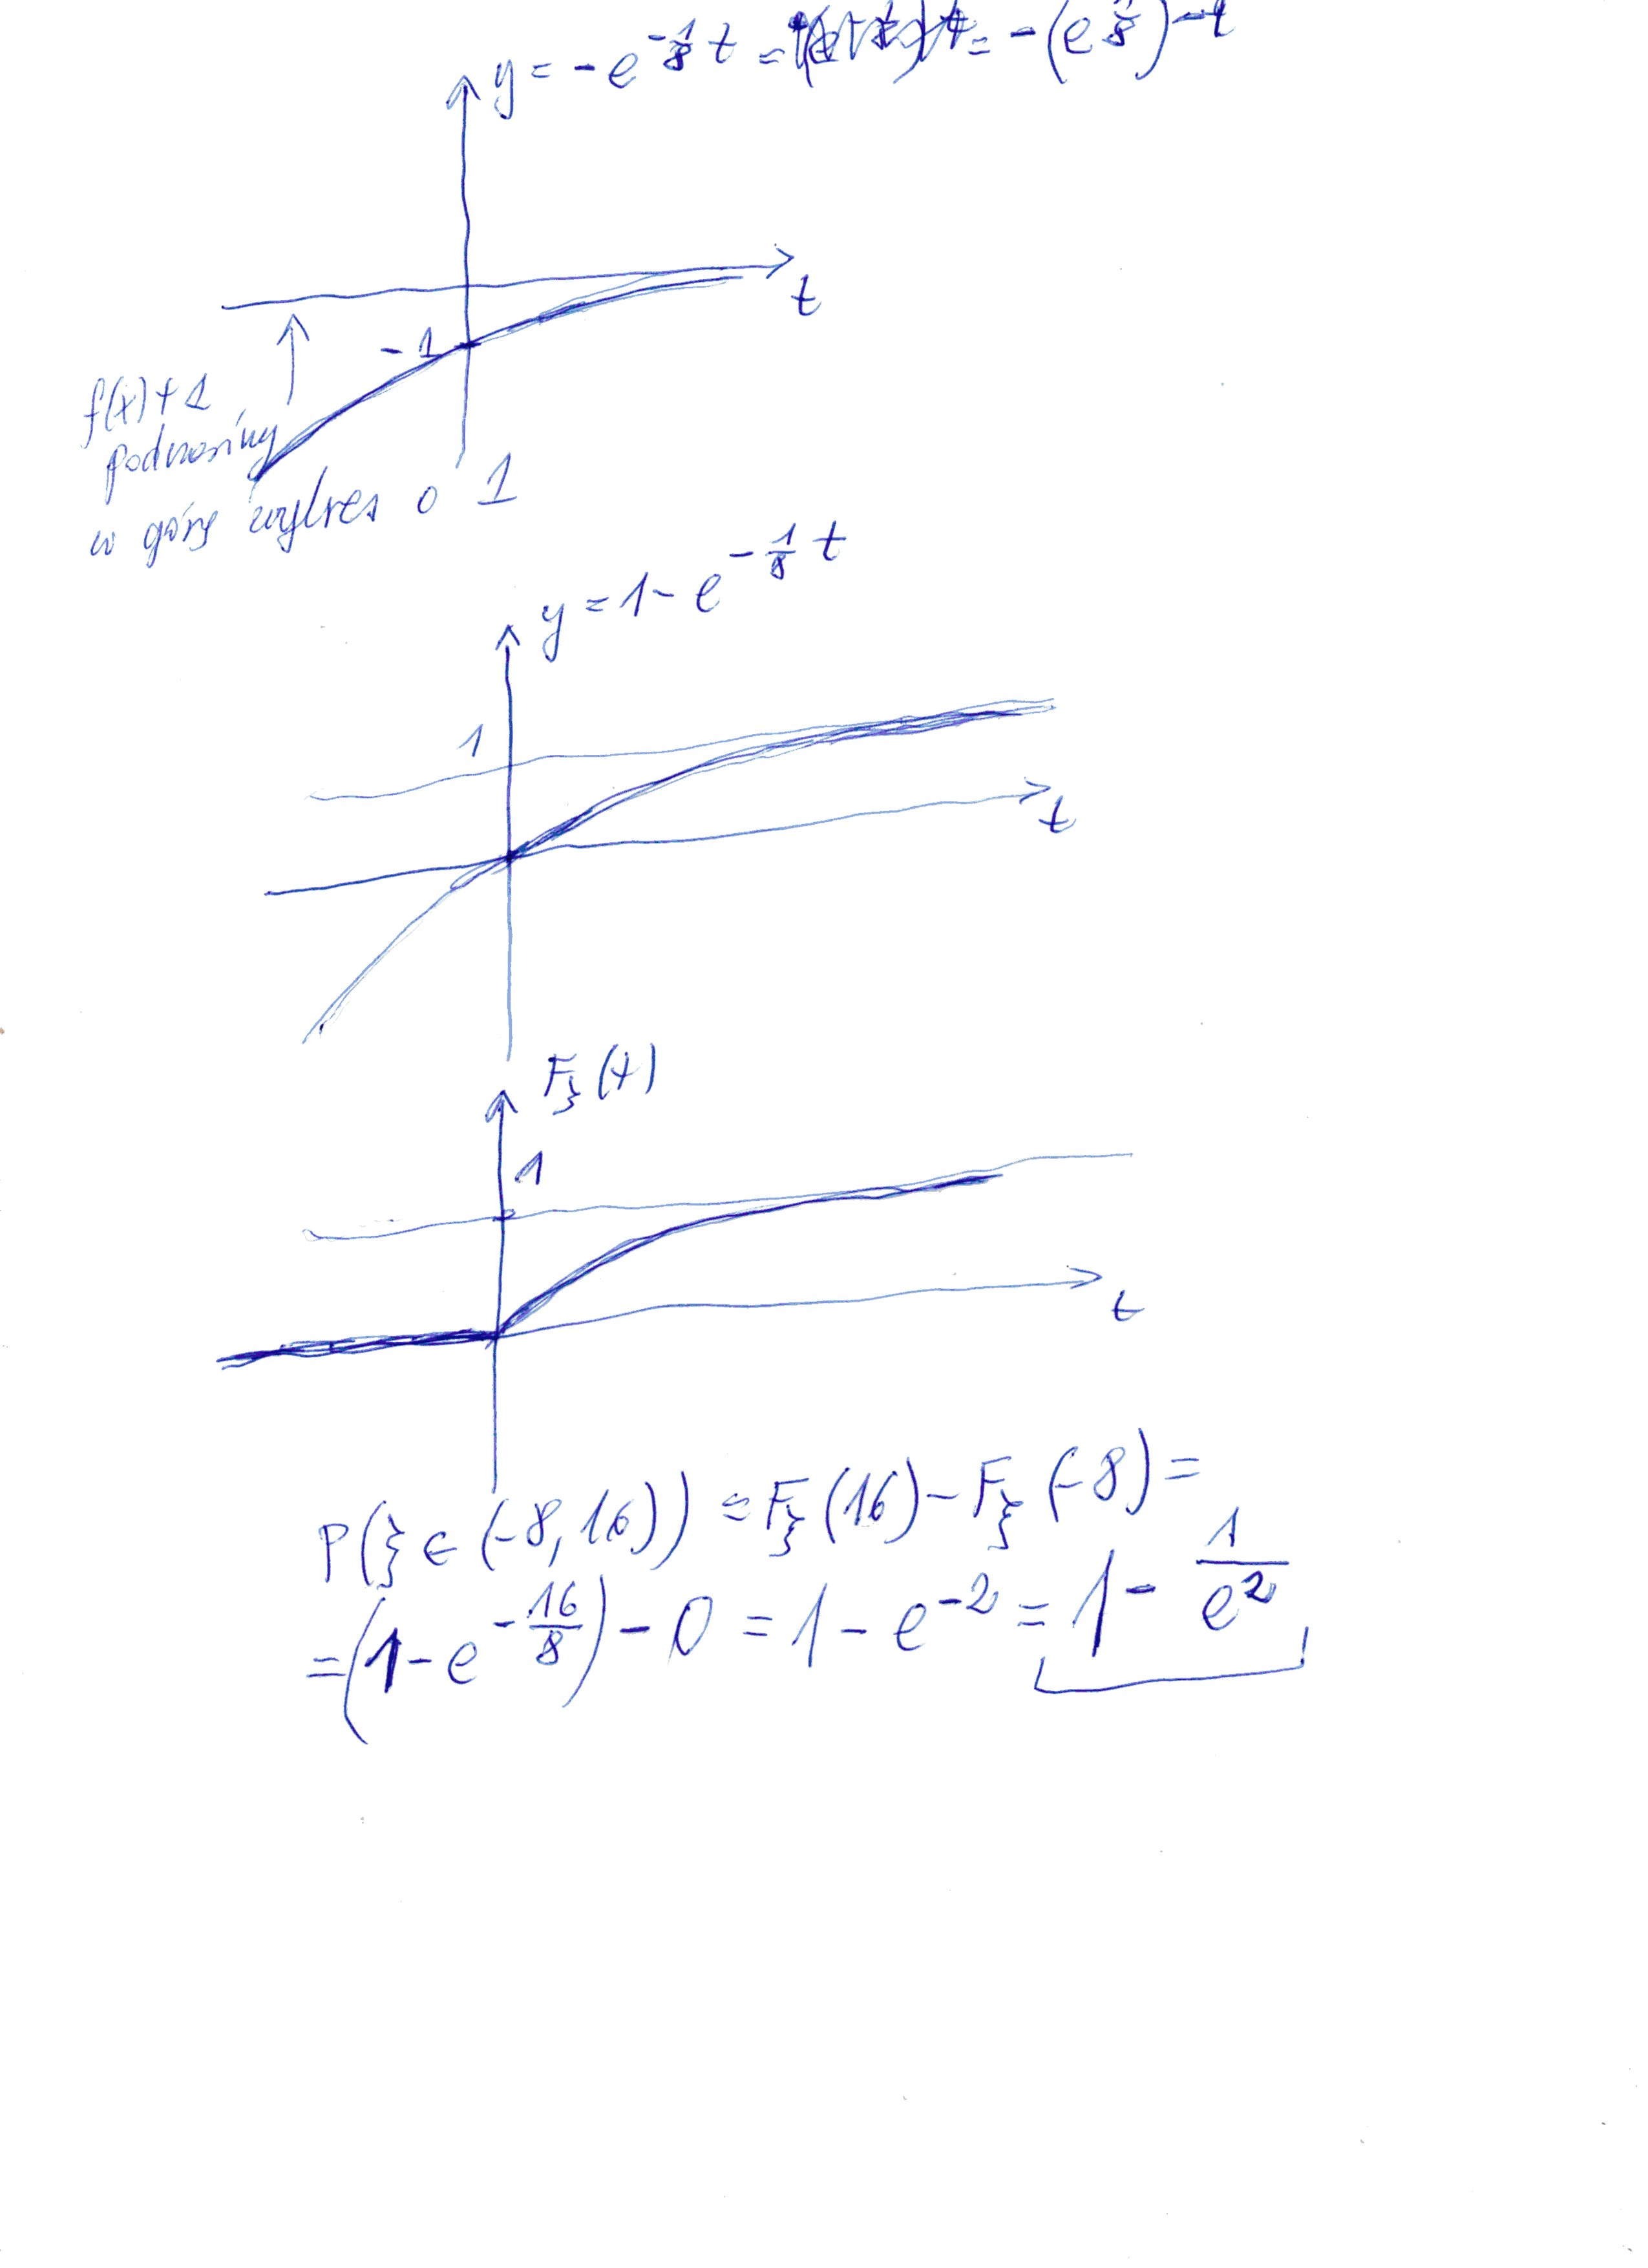 y = -e^{-\frac{1}{8}t} = = -(e^{\frac{1}{8}})^{-t}
t
-1
f(x)+1
podnosimy
w górę wykres o 1
y = 1 - e^{-\frac{1}{8}t}
1
t
F_ξ(t)
1
t
P(ξ ∈ (-8, 16)) = F_ξ(16) - F_ξ(-8) =
= (1 - e^{-\frac{16}{8}}) - 0 = 1 - e^{-2} = 1 - \frac{1}{e^2}